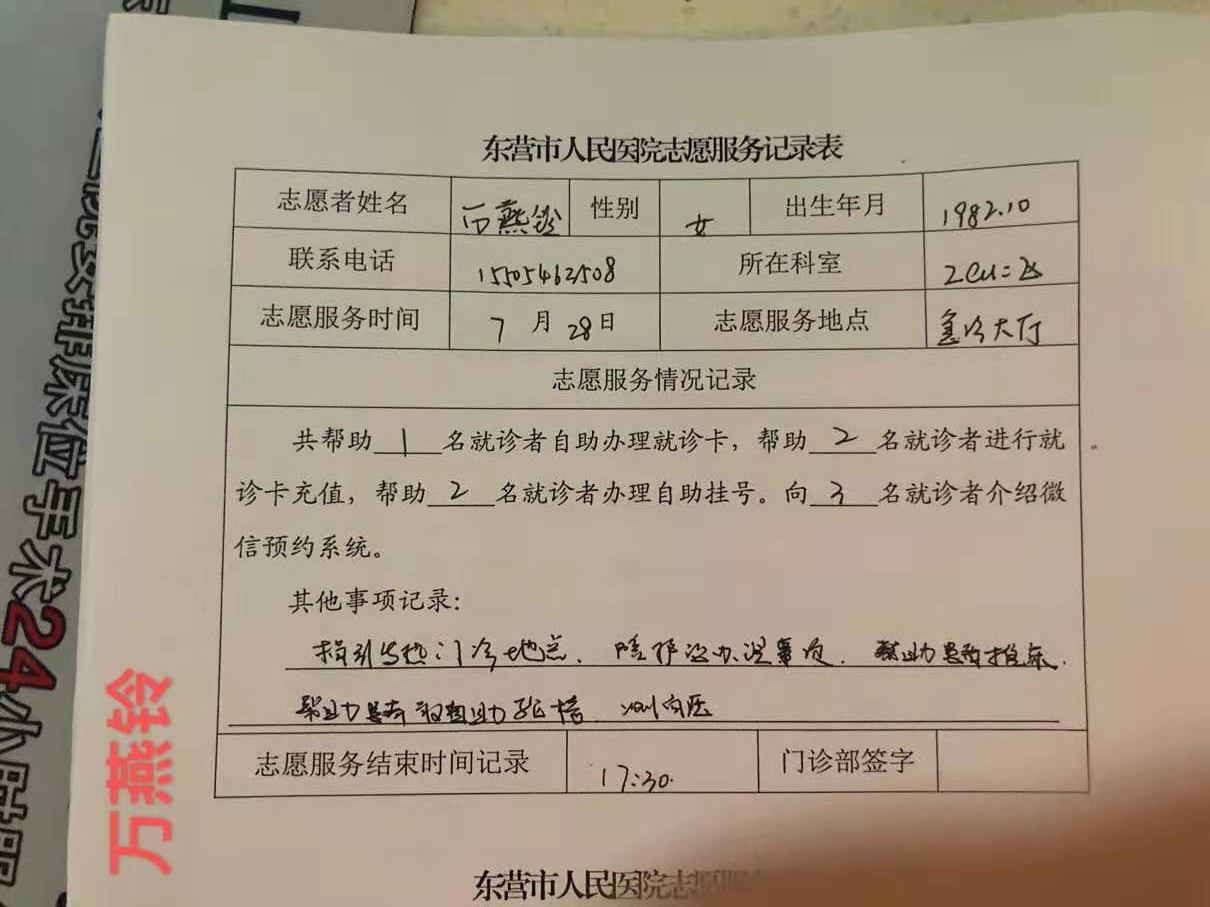 东营市人民医院志愿服务记录表
志愿者姓名 万燕铃 性别 女 出生年月 1982.10
联系电话 15505462508 所在科室
志愿服务时间 7月28日 志愿服务地点 急诊大厅
志愿服务情况记录
共帮助1名就诊者自助办理就诊卡，帮助2名就诊者进行就
诊卡充值，帮助2名就诊者办理自助挂号。向3名就诊者介绍微
信预约系统。
其他事项记录：
指引发热门诊地点、维护
帮助患者取自助 测血压
志愿服务结束时间记录 17:30. 门诊部签字
东营市人民医院志愿服
万燕铃
院安排床位手术24小时服